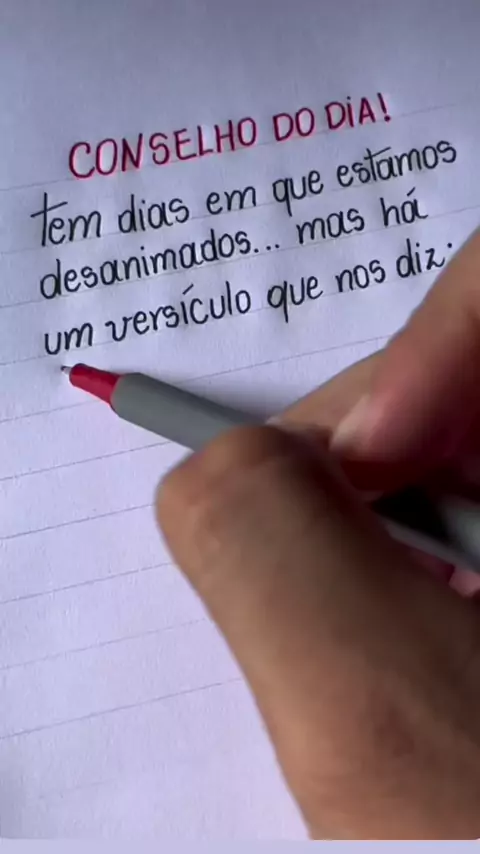 CONSELHO DO DIA!
Tem dias em que estamos
desanimados... mas há
um versículo que nos diz: